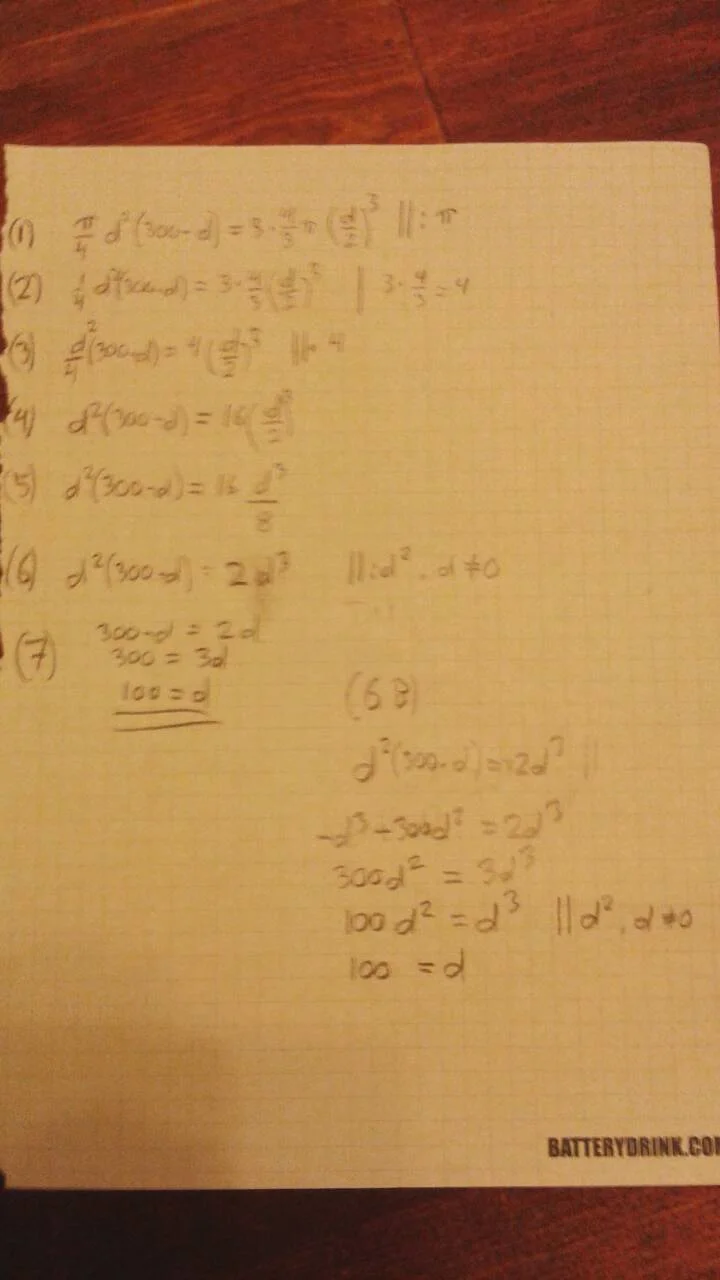 (1) π/4 d²(300-d) = 3·4/3 π (d/2)³ ||: π
(2) 1/4 d²(300-d) = 3·4/3 (d/2)³ | 3·4/3 = 4
(3) d²/4 (300-d) = 4 (d/2)³ ||· 4
(4) d²(300-d) = 16(d/2)³
(5) d²(300-d) = 16 d³/8
(6) d²(300-d) = 2d³ ||:d², d≠0
(7) 300-d = 2d
300 = 3d
100 = d
(6B)
d²(300-d) = 2d³ ||
-d³+300d² = 2d³
300d² = 3d³
100d² = d³ ||d², d≠0
100 = d
BATTERYDRINK.CO